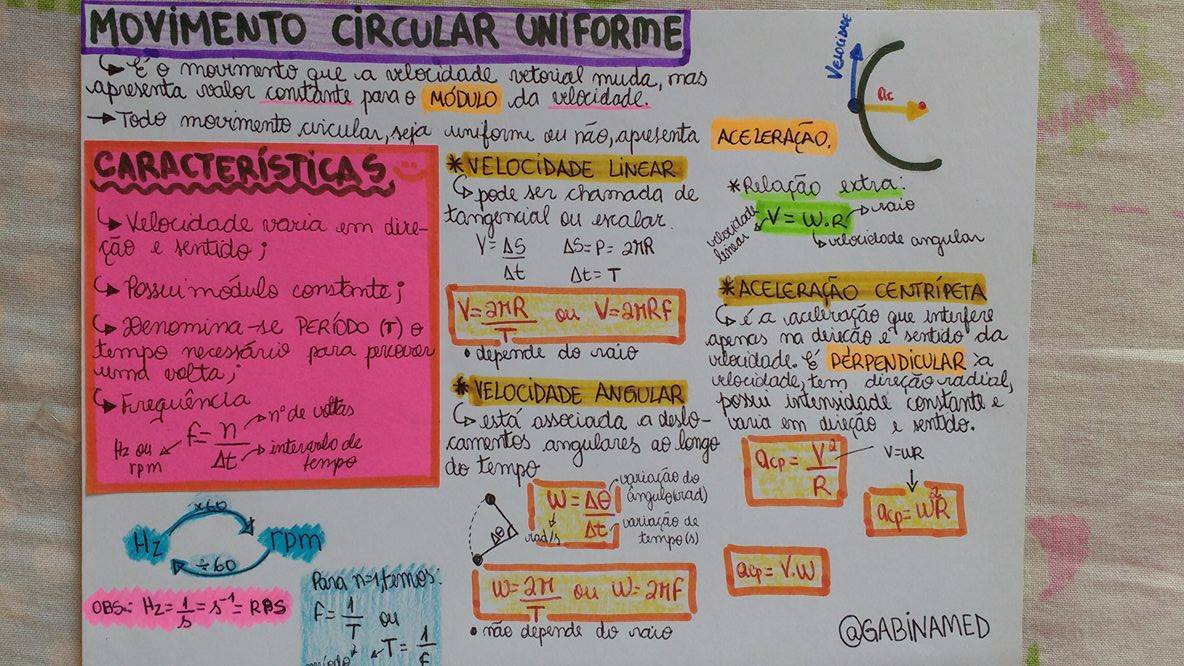 MOVIMENTO CIRCULAR UNIFORME
↳ É o movimento que a velocidade vetorial muda, mas
apresenta valor constante para o MÓDULO da velocidade.
→ Todo movimento circular, seja uniforme ou não, apresenta ACELERAÇÃO.
CARACTERÍSTICAS
↳ Velocidade varia em dire-
ção e sentido;
↳ Possui módulo constante;
↳ Denomina-se PERÍODO (T) o
tempo necessário para percorrer
uma volta;
↳ Frequência
Hz ou rpm
f = n/Δt
nº de voltas
intervalo de
tempo
×60
Hz
rpm
÷60
OBS.: Hz = 1/s = s⁻¹ = RPS
Para n=1, temos:
f = 1/T ou
T = 1/f
* VELOCIDADE LINEAR
↳ pode ser chamada de
tangencial ou escalar.
V = ΔS/Δt
ΔS = P = 2πR
Δt = T
V = 2πR/T ou V = 2πRf
• depende do raio
* VELOCIDADE ANGULAR
↳ está associada a deslo-
camentos angulares ao longo
do tempo
Δθ
W = Δθ/Δt
rad/s
variação do
ângulo(rad)
variação de
tempo(s)
W = 2π/T ou W = 2πf
• não depende do raio
VELOCIDADE
ac
* Relação extra:
V = W.R
velocidade
linear
raio
velocidade angular
* ACELERAÇÃO CENTRÍPETA
↳ é a aceleração que interfere
apenas na direção e sentido da
velocidade. É PERPENDICULAR à
velocidade, tem direção radial,
possui intensidade constante e
varia em direção e sentido.
acp = V²/R
V=WR
acp = W²R
acp = V.W
@GABINAMED